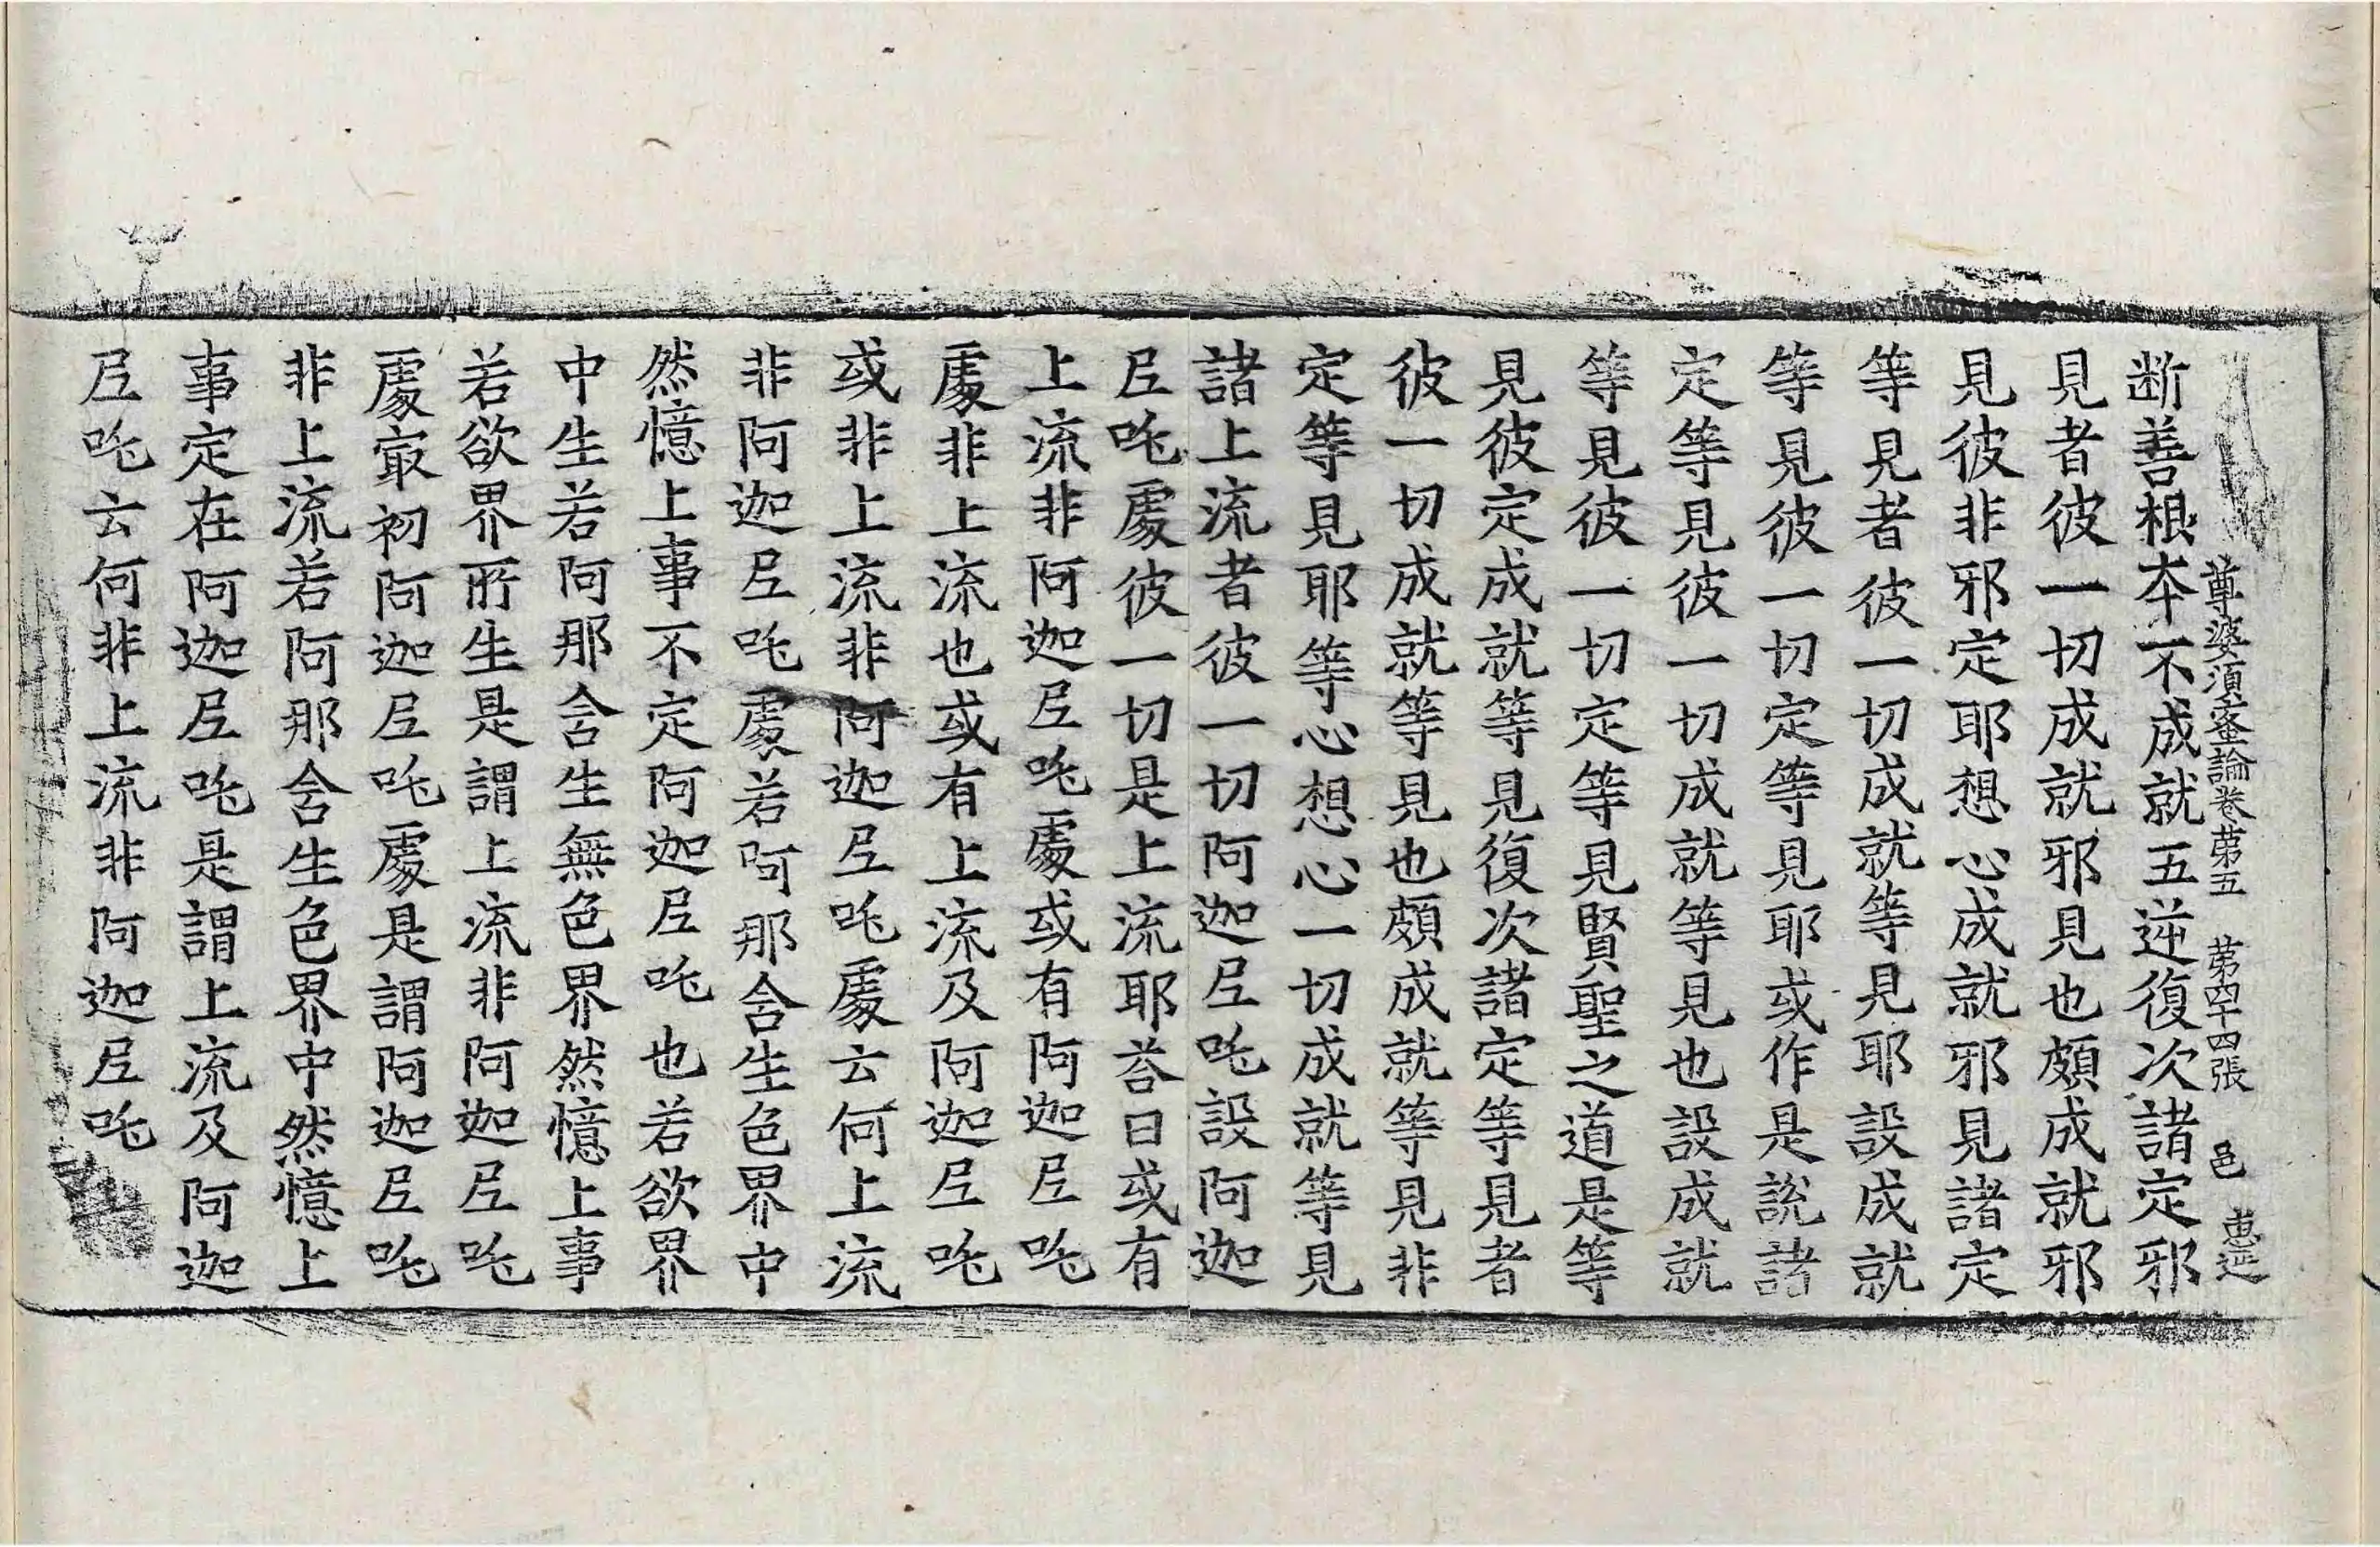 尊婆須蜜論卷第五　第四十四張　邑　惠延
断善根本不成就五逆復次諸定邪
見者彼一切成就邪見也頗成就邪
見彼非邪定耶想心成就邪見諸定
等見者彼一切成就等見耶設成就
等見彼一切定等見耶或作是說諸
定等見彼一切成就等見也設成就
等見彼一切定等見賢聖之道是等
見彼定成就等見復次諸定等見者
彼一切成就等見也頗成就等見非
定等見耶等心想心一切成就等見
諸上流者彼一切阿迦𡰱吒設阿迦
𡰱吒處彼一切是上流耶荅曰或有
上流非阿迦𡰱吒處或有阿迦𡰱吒
處非上流也或有上流及阿迦𡰱吒
或非上流非阿迦𡰱吒處云何上流
非阿迦𡰱吒處若阿那含生色界中
然憶上事不定阿迦𡰱吒也若欲界
中生若阿那含生無色界然憶上事
若欲界所生是謂上流非阿迦𡰱吒
處冣初阿迦𡰱吒處是謂阿迦𡰱吒
非上流若阿那含生色界中然憶上
事定在阿迦𡰱吒是謂上流及阿迦
𡰱吒云何非上流非阿迦𡰱吒